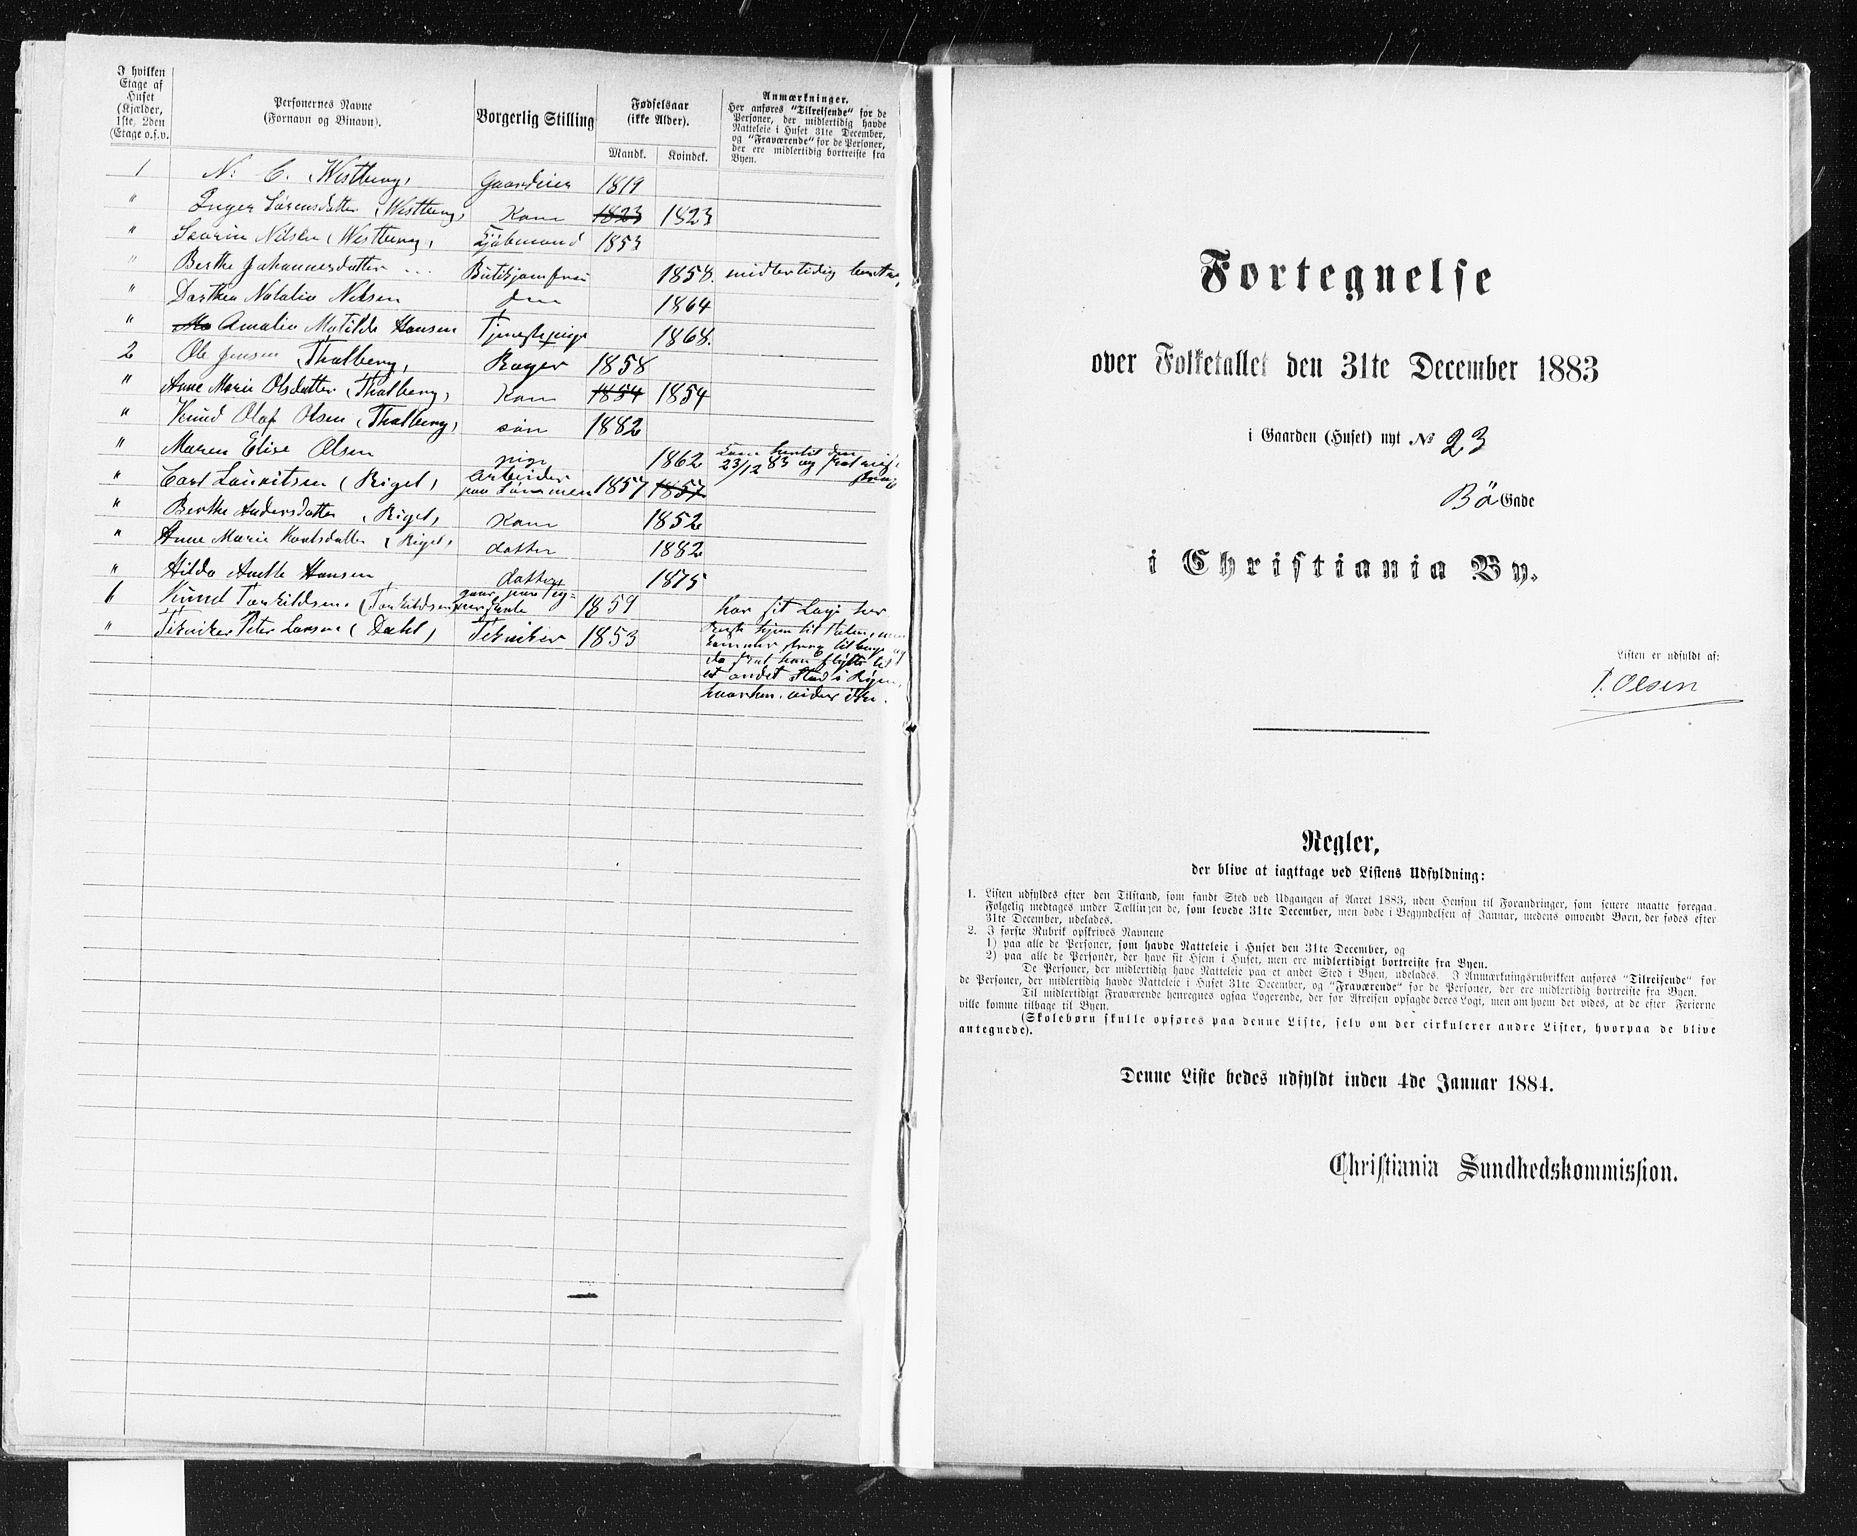 I hvilken
Etage af
Huset
(Kjælder,
1ste, 2den
(Etage o.s.v.
Personernes Navne
(Fornavn og Binavn).
Borgerlig Stilling
Fødselsaar
(ikke Alder).
Mandk. Kvindek.
Anmærkninger.
Her anføres "Tilreisende" for de
Personer, der midlertidig havde
Natteleie i Huset 31te December,
og "Fraværende" for de Personer,
der ere midlertidig bortreiste fra
Byen.
1 N. C. (Westberg) Gaardeier 1819
" Inger Sørensdatter (Westberg) Kone 1823 1823
" Severin Nilsen (Westberg) Kjøbmand 1853
" Berthe Johannesdatter ... Butikjomfru 1858. midlertidig
" Dorthea Natalia Nilsen 1864
" Mo Amalia Matilde Hansen Tjenestepige 1868.
2 Ole Jensen (Thalberg) Bager 1858
" Anne Marie Olsdatter (Thalberg) Kone 1854 1854
" Knud Olaf Olsen (Thalberg) søn 1882
" Maren Elise Olsen pige 1862 23/12 83 og
" Carl Lauritsen (Rigel) arbeider 1857 1857
" Berthe Andersdatter (Rigel) Kone 1852
" Anne Marie Karlsdatter (Rigel) datter 1882
" Hilda Anette Hansen datter 1875
Knud Torkildsen (Torkildsen) 1859 har sit Logi her
" Tekniker Peter Larsen (Dahl) Tekniker 1853
et andet sted i Byen,
Fortegnelse
over Folketallet den 31te December 1883
i Gaarden (Huset) nyt № 23
Bö Gade
i Christiania By.
Listen er udfyldt af:
Olsen
Regler,
der blive at iagttage ved Listens Udfyldning:
1. Listen udfyldes efter den Tilstand, som fandt Sted ved Udgangen af Aaret 1883, uden Hensyn til Forandringer, som senere maatte foregaa.
Følgelig medtages under Tællingen de, som levede 31te December, men døde i Begyndelsen af Januar, medens omvendt Børn, der fødes efter
31te December, udelades.
2. I første Rubrik opskrives Navnene
1) paa alle de Personer, som havde Natteleie i Huset den 31te December, og
2) paa alle de Personer, der have sit Hjem i Huset, men ere midlertidigt bortreiste fra Byen.
De Personer, der midlertidig have Natteleie paa et andet Sted i Byen, udelades. I Anmærkningsrubrikken anføres "Tilreisende" for
de Personer, der midlertidig havde Natteleie i Huset 31te December, og "Fraværende" for de Personer, der ere midlertidig bortreiste fra Byen.
Til midlertidigt Fraværende henregnes ogsaa Logerende, der før Afreisen opsagde deres Logi, men om hvem det vides, at de efter Ferierne
ville komme tilbage til Byen.
(Skolebørn skulle opføres paa denne Liste, selv om der cirkulerer andre Lister, hvorpaa de blive
antegnede).
Denne Liste bedes udfyldt inden 4de Januar 1884.
Christiania Sundhedskommission.